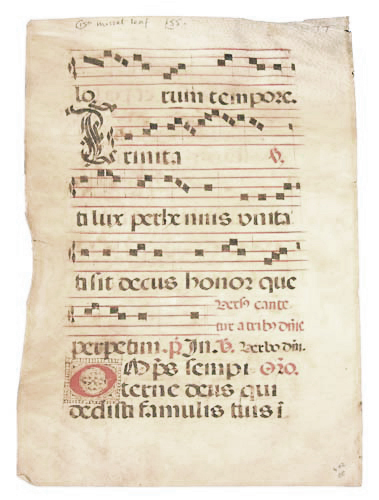 C15th missal leaf £55.
lo rum tempore.
Trinita ℣.
ti lux perhennis unita
ti sit decus honor que
Versꝫ cante
tur a tribꝫ dm̄e
perpetim. p̄ In. ℣. Verbo dm̄.
Omp̄s sempi Oro.
terne deus qui
dedisti famulis tuis ī